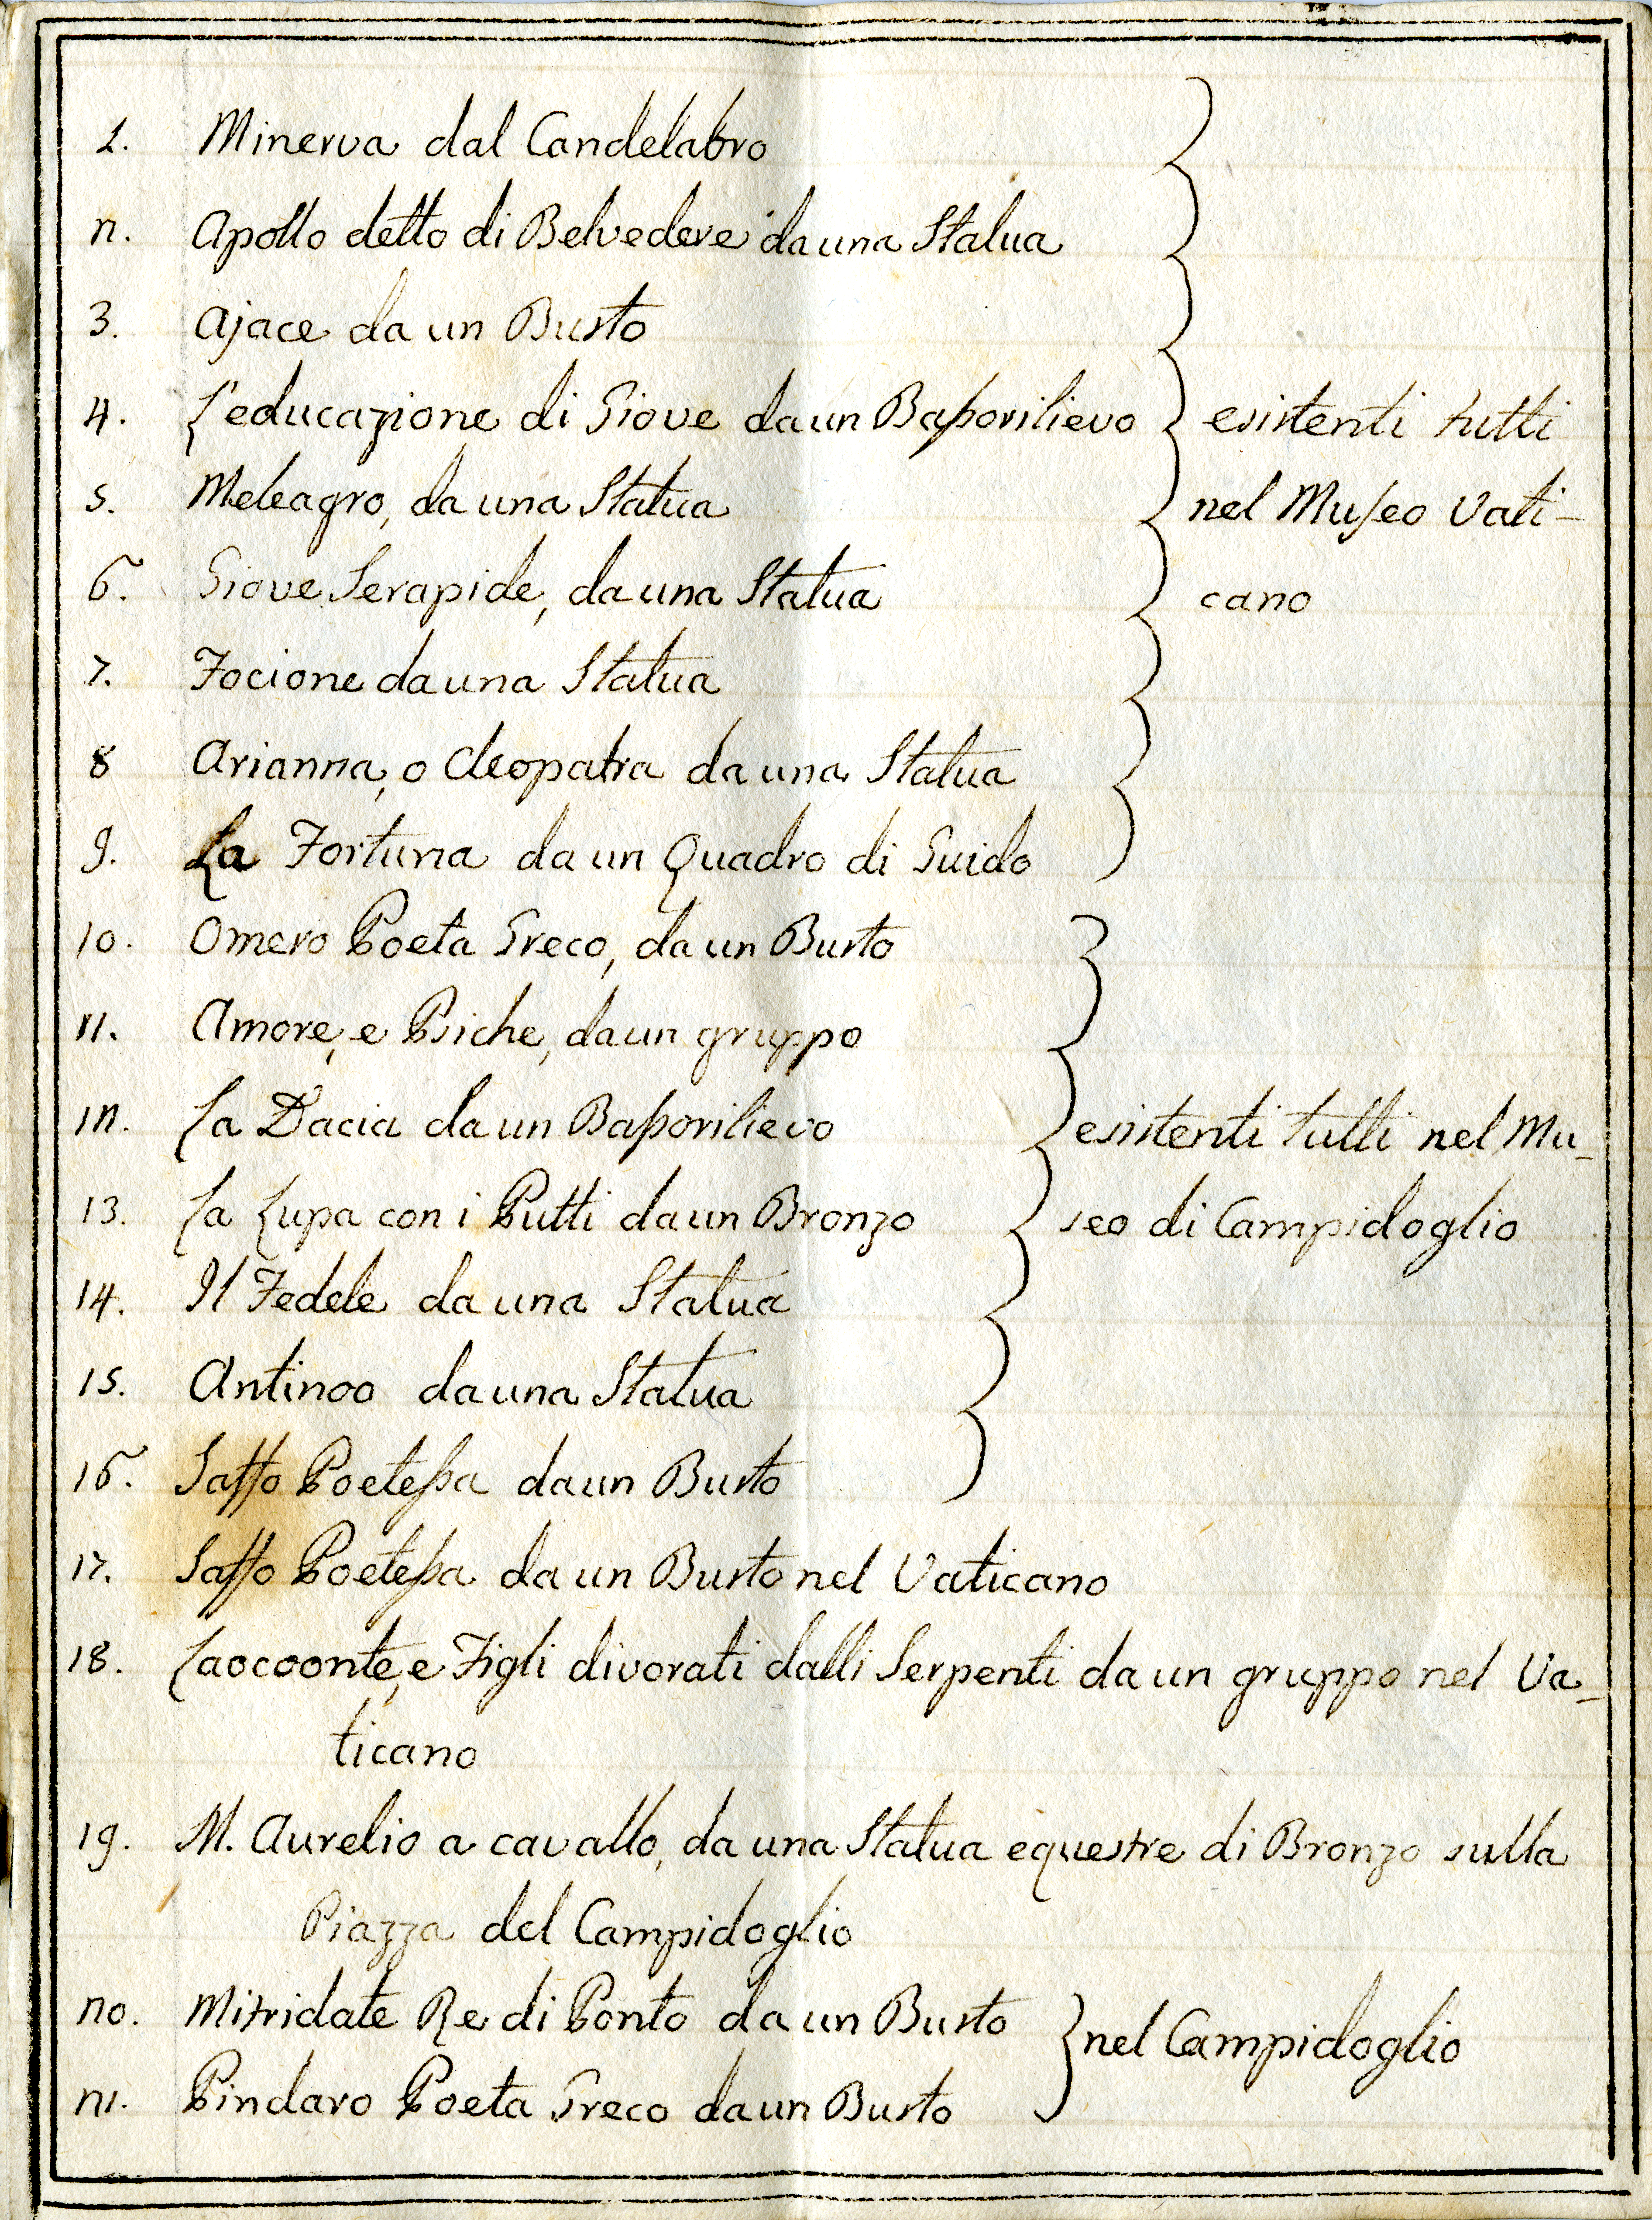 1. Minerva dal Candelabro
2. Apollo detto di Belvedere da una Statua
3. Ajace da un Busto
4. L'educazione di Giove da un Bassorilievo
5. Meleagro, da una Statua
6. Giove Serapide, da una Statua
7. Focione da una Statua
8 Arianna, o Cleopatra da una Statua
9. La Fortuna da un Quadro di Guido
esistenti tutti
nel Museo Vati-
cano
10. Omero Poeta Greco, da un Busto
11. Amore, e Psiche, da un gruppo
12. La Dacia da un Bassorilievo
13. La Lupa con i Putti da un Bronzo
14. Il Fedele da una Statua
15. Antinoo da una Statua
16. Saffo Poetessa da un Busto
esistenti tutti nel Mu-
seo di Campidoglio
17. Saffo Poetessa da un Busto nel Vaticano
18. Laocoonte, e Figli divorati dalli Serpenti da un gruppo nel Va-
ticano
19. M. Aurelio a cavallo, da una Statua equestre di Bronzo sulla
Piazza del Campidoglio
20. Mitridate Re di Ponto da un Busto
21. Pindaro Poeta Greco da un Busto
nel Campidoglio